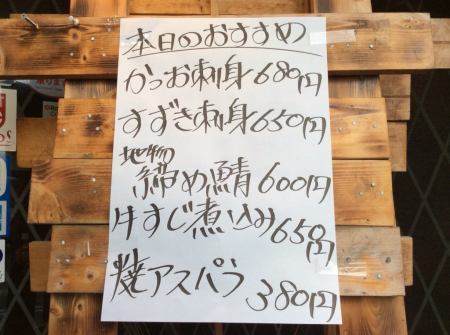 本日のおすすめ
かつお刺身680円
すずき刺身650円
地物
締め鯖600円
牛すじ煮込み650円
焼アスパラ380円